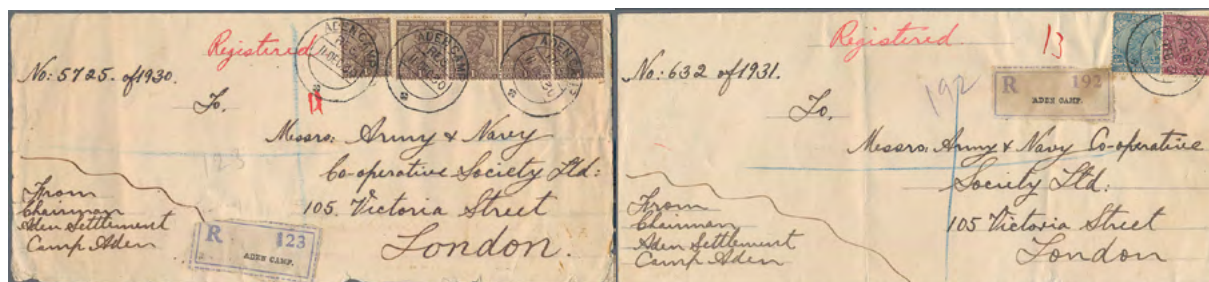 Registered
No: 5725. of 1930.
To.
Messrs: Army & Navy
Co-operative Society Ltd:
105. Victoria Street
London.
From
Chairman
Aden Settlement
Camp Aden
123
R 123
ADEN CAMP.
ADEN CAMP
REG
11 DEC 30
Registered
13
No: 632 of 1931.
192
R 192
ADEN CAMP.
To,
Messrs: Army & Navy Co-operative
Society Ltd:
105 Victoria Street
London
From
Chairman
Aden Settlement
Camp Aden